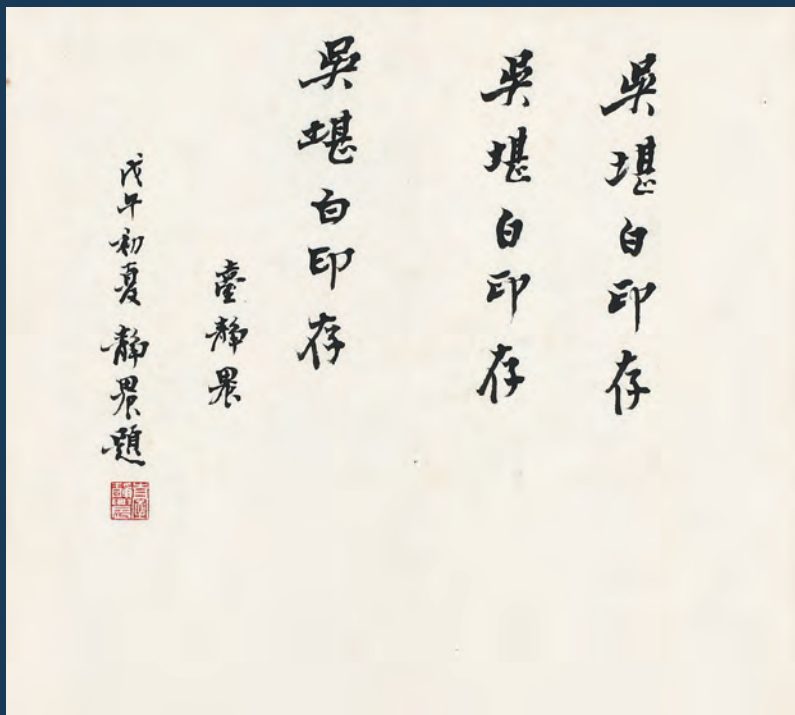 吳堪白印存
吳堪白印存
吳堪白印存
臺靜農
戊午初夏 靜農題